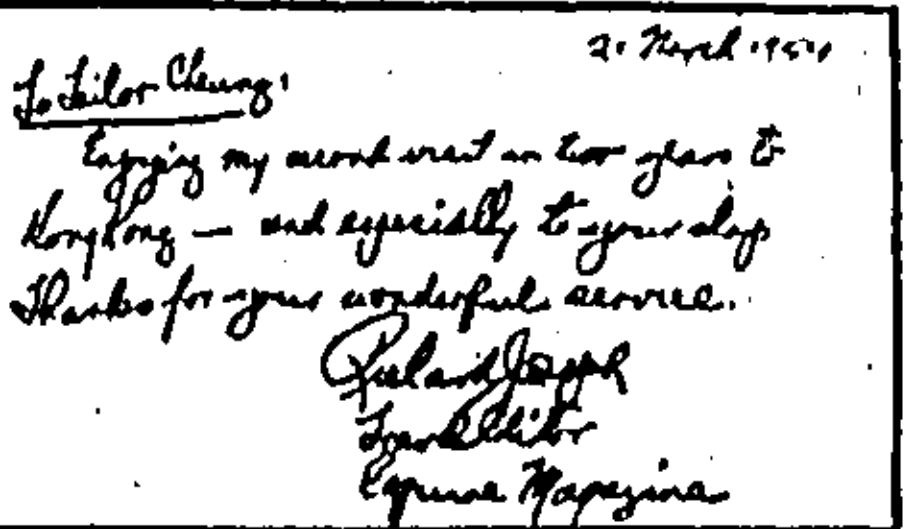 2 March 195
To Tailor Cheung,
Enjoying my second visit in two years to
Hong Kong — and especially to your shop
Thanks for your wonderful service.
Richard Joseph
Travel Editor
Esquire Magazine